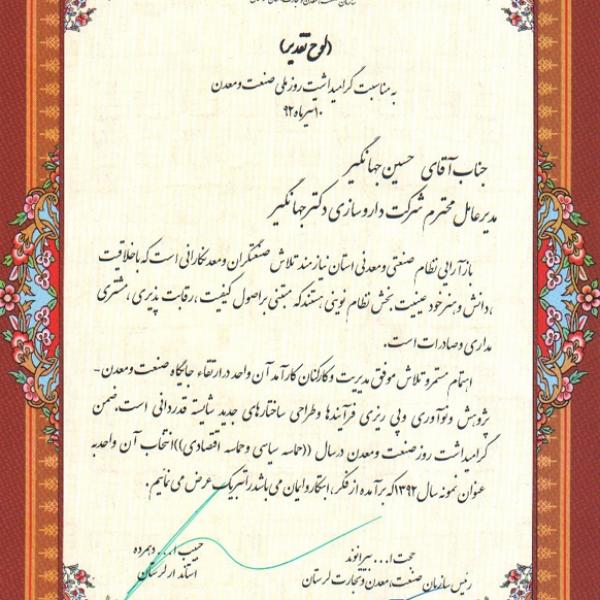 (لوح تقدیر)
به مناسبت گرامیداشت روز ملی صنعت و معدن
۱۰ تیرماه ۹۲
جناب آقای حسین جهانگیر
مدیرعامل محترم شرکت داروسازی دکتر جهانگیر
بازآرایی نظام صنعتی و معدنی استان نیازمند تلاش صنعتگران و معدنکارانی است که با خلاقیت
،دانش و هنر خود عینیت بخش نظام نوینی هستند که مبتنی بر اصول کیفیت ،رقابت پذیری ،مشتری
مداری و صادرات است.
اهتمام مستمر و تلاش موفق مدیریت و کارکنان کارآمد آن واحد در ارتقاء جایگاه صنعت و معدن-
پژوهش و نوآوری و پی ریزی فرآیندها و طراحی ساختارهای جدید شایسته قدردانی است. ضمن
گرامیداشت روز صنعت و معدن در سال ((حماسه سیاسی و حماسه اقتصادی)) انتخاب آن واحد به
عنوان نمونه سال ۱۳۹۲ که برآمده از فکر ، ابتکار و ایمان می باشد را تبریک عرض می نمائیم.
حجت ا... بیرانوند
رئیس سازمان صنعت،معدن و تجارت لرستان
حبیب ا... دهمرده
استاندار لرستان